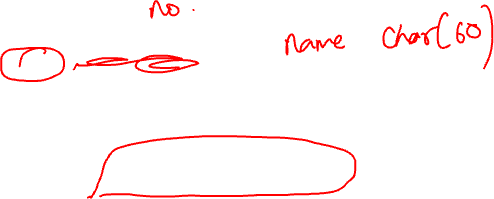 no.
name char(60)